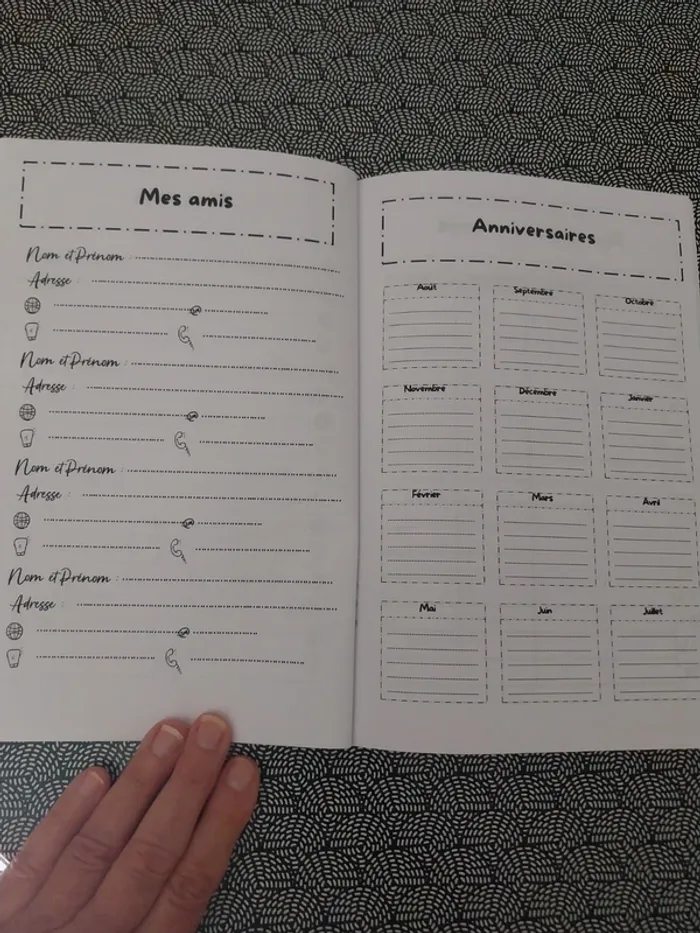 Mes amis
Nom et Prénom :
Adresse :
@
Nom et Prénom :
Adresse :
@
Nom et Prénom :
Adresse :
@
Nom et Prénom :
Adresse :
@
Anniversaires
Août Septembre Octobre
Novembre Décembre Janvier
Février Mars Avril
Mai Juin Juillet